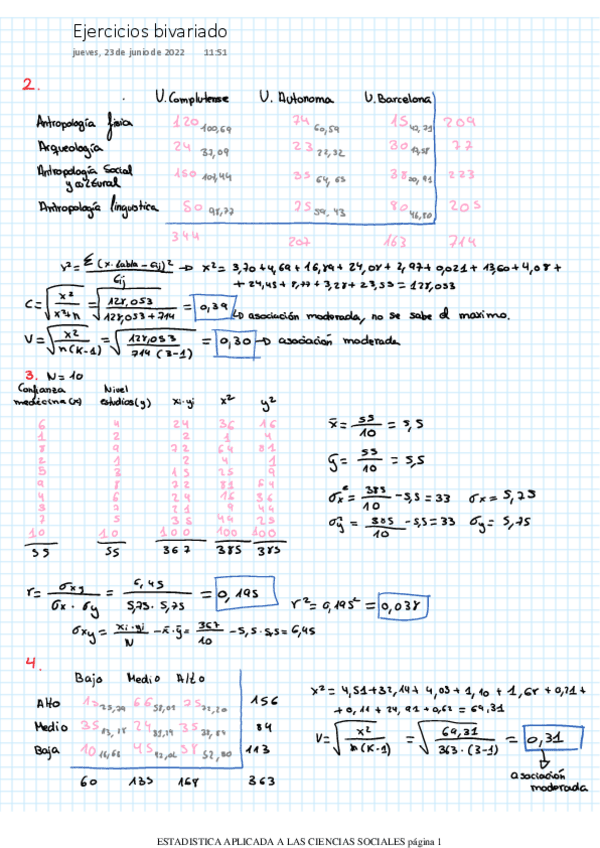 Ejercicios bivariado
jueves, 23 de junio de 2022 11:51
2.
U. Complutense U. Autonoma U. Barcelona
Antropología física 120 100,69 74 60,59 15 209
Arqueología 24 37,09 23 22,32 30 77
Antropología Social y cultural 150 107,44 35 64,65 38 223
Antropología linguistica 50 25 59,43 80 46,80 205
344 207 163 714
x² = 3,70 + 4,69 + 16,89 + 24,08 + 2,97 + 0,021 + 13,60 + 4,08 +
+ 24,45 + 8,77 + 3,28 + 23,55 = 128,053
C = √ x² / x² + n = √ 128,053 / 128,053 + 714 = 0,39 ↳ asociación moderada, no se sabe el maximo.
V = √ x² / n(K-1) = √ 128,053 / 714 (3-1) = 0,30 → asociación moderada
3. N = 10
Confianza medicina (x) Nivel estudios (y) xi·yi x² y²
6 4 24 36 16
1 2 2 1 4
8 9 72 64 81
2 1 2 4 1
5 3 15 25 9
9 8 72 81 64
4 6 24 16 36
3 7 21 9 49
7 5 35 49 25
10 10 100 100 100
55 55 367 385 385
x̄ = 55 / 10 = 5,5
ȳ = 55 / 10 = 5,5
σx² = 385 / 10 - 5,5 = 33 σx = 5,75
σy² = 385 / 10 - 5,5 = 33 σy = 5,75
r = σxy / σx · σy = 6,45 / 5,75 · 5,75 = 0,195 r² = 0,195² = 0,038
σxy = xi·yi / N - x̄·ȳ = 367 / 10 - 5,5 · 5,5 = 6,45
4.
Bajo Medio Alto
Alto 66 58,01 25 156
Medio 35 24 35 84
Baja 10 45 58 113
60 135 168 363
x² = 4,51 + 32,14 + 4,03 + 1,10 + 1,68 + 0,21 +
+ 0,11 + 24,91 + 0,62 = 69,31
V = √ x² / n(K-1) = √ 69,31 / 363 · (3-1) = 0,31
asociación
moderada
ESTADISTICA APLICADA A LAS CIENCIAS SOCIALES página 1